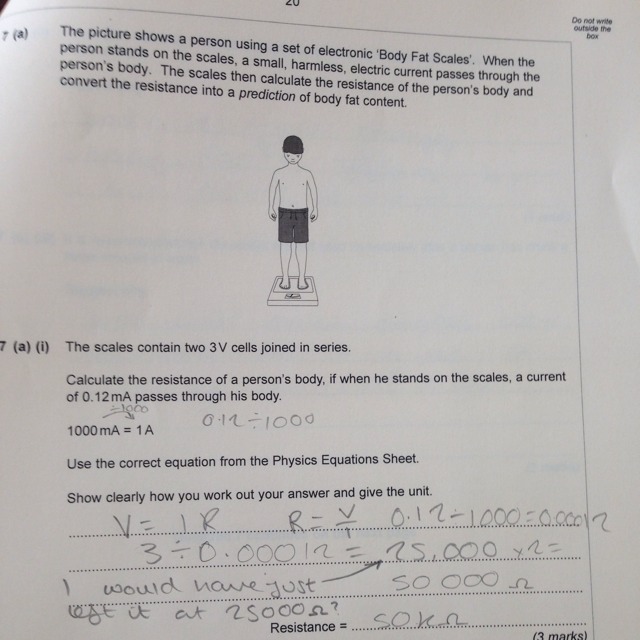 20
Do not write
outside the
box
7 (a) The picture shows a person using a set of electronic 'Body Fat Scales'. When the
person stands on the scales, a small, harmless, electric current passes through the
person's body. The scales then calculate the resistance of the person's body and
convert the resistance into a prediction of body fat content.
7 (a) (i) The scales contain two 3V cells joined in series.
Calculate the resistance of a person's body, if when he stands on the scales, a current
of 0.12mA passes through his body.
÷1000
1000mA = 1A 0.12÷1000
Use the correct equation from the Physics Equations Sheet.
Show clearly how you work out your answer and give the unit.
V = IR R = V/I 0.12÷1000=0.00012
3 ÷ 0.00012 = 25,000 x2=
I would have just 50 000 Ω
left it at 25000Ω?
Resistance = 50kΩ
(3 marks)